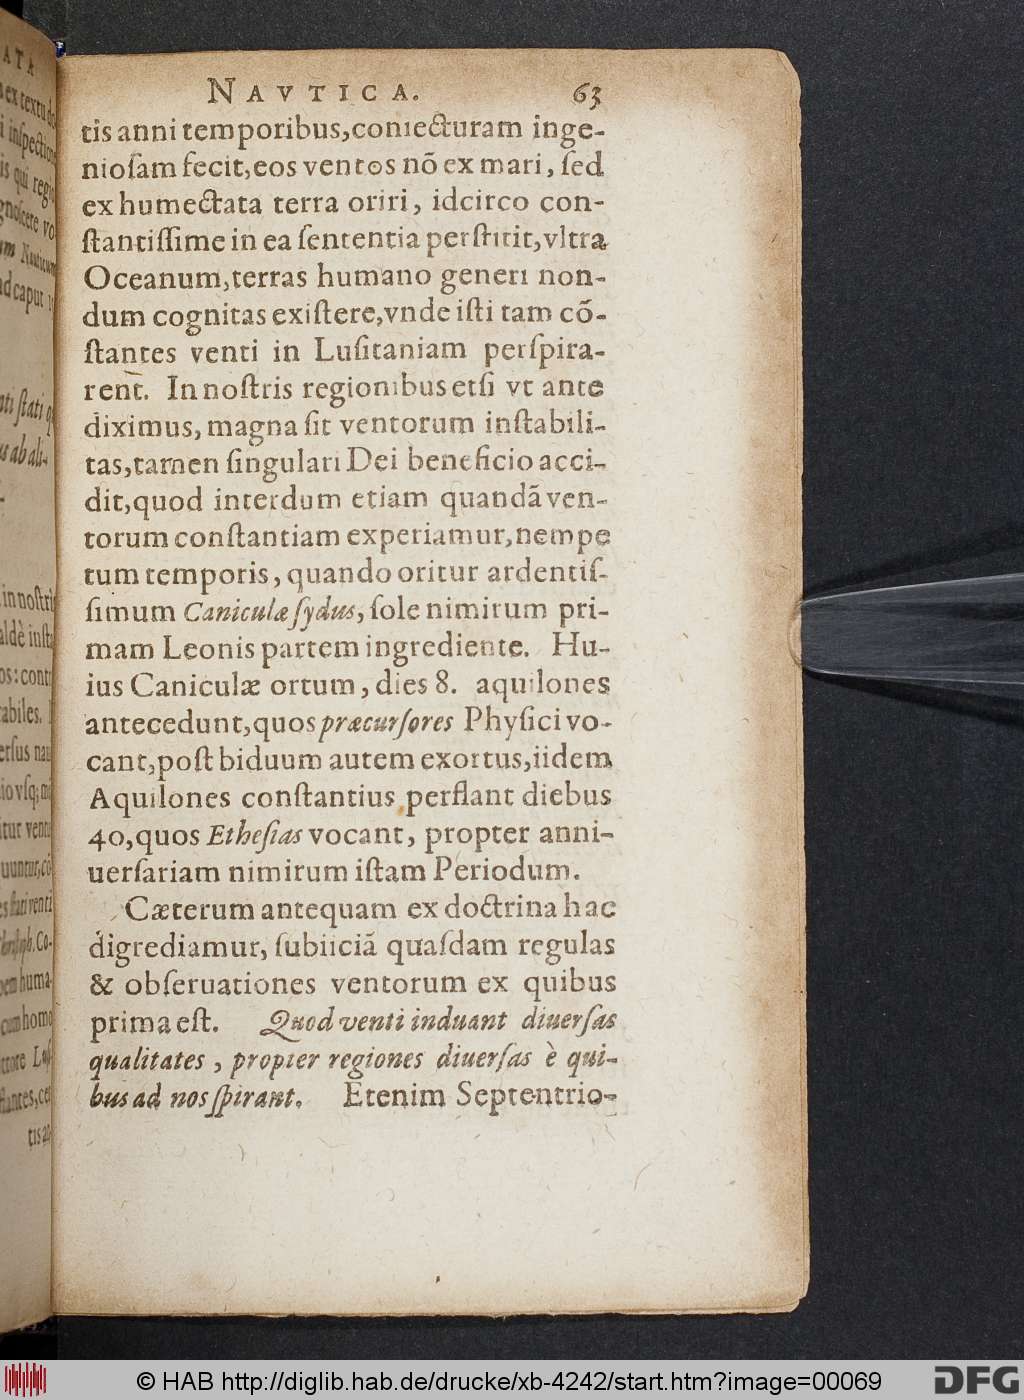 NAVTICA. 63
tis anni temporibus,coniecturam inge-
nioſam fecit,eos ventos nõ ex mari, ſed
ex humectata terra oriri, idcirco con-
ſtantiſſime in ea ſententia perſtitit,vltra
Oceanum,terras humano generi non-
dum cognitas exiſtere,vnde iſti tam cõ-
ſtantes venti in Luſitaniam perſpira-
rent. In noſtris regionibus etſi vt ante
diximus, magna ſit ventorum inſtabili-
tas,tamen ſingulari Dei beneficio acci-
dit,quod interdum etiam quandã ven-
torum conſtantiam experiamur,nempe
tum temporis, quando oritur ardentiſ-
ſimum Caniculæ ſydus, ſole nimirum pri-
mam Leonis partem ingrediente. Hu-
ius Caniculæ ortum, dies 8. aquilones
antecedunt,quos præcurſores Phyſici vo-
cant,poſt biduum autem exortus,iidem
Aquilones conſtantius perflant diebus
40,quos Etheſias vocant, propter anni-
uerſariam nimirum iſtam Periodum.
Cæterum antequam ex doctrina hac
digrediamur, ſubiiciã quaſdam regulas
& obſeruationes ventorum ex quibus
prima eſt. Quod venti induant diuerſas
qualitates, propter regiones diuerſas è qui-
bus ad nos ſpirant. Etenim Septentrio-
© HAB http://diglib.hab.de/drucke/xb-4242/start.htm?image=00069
DFG